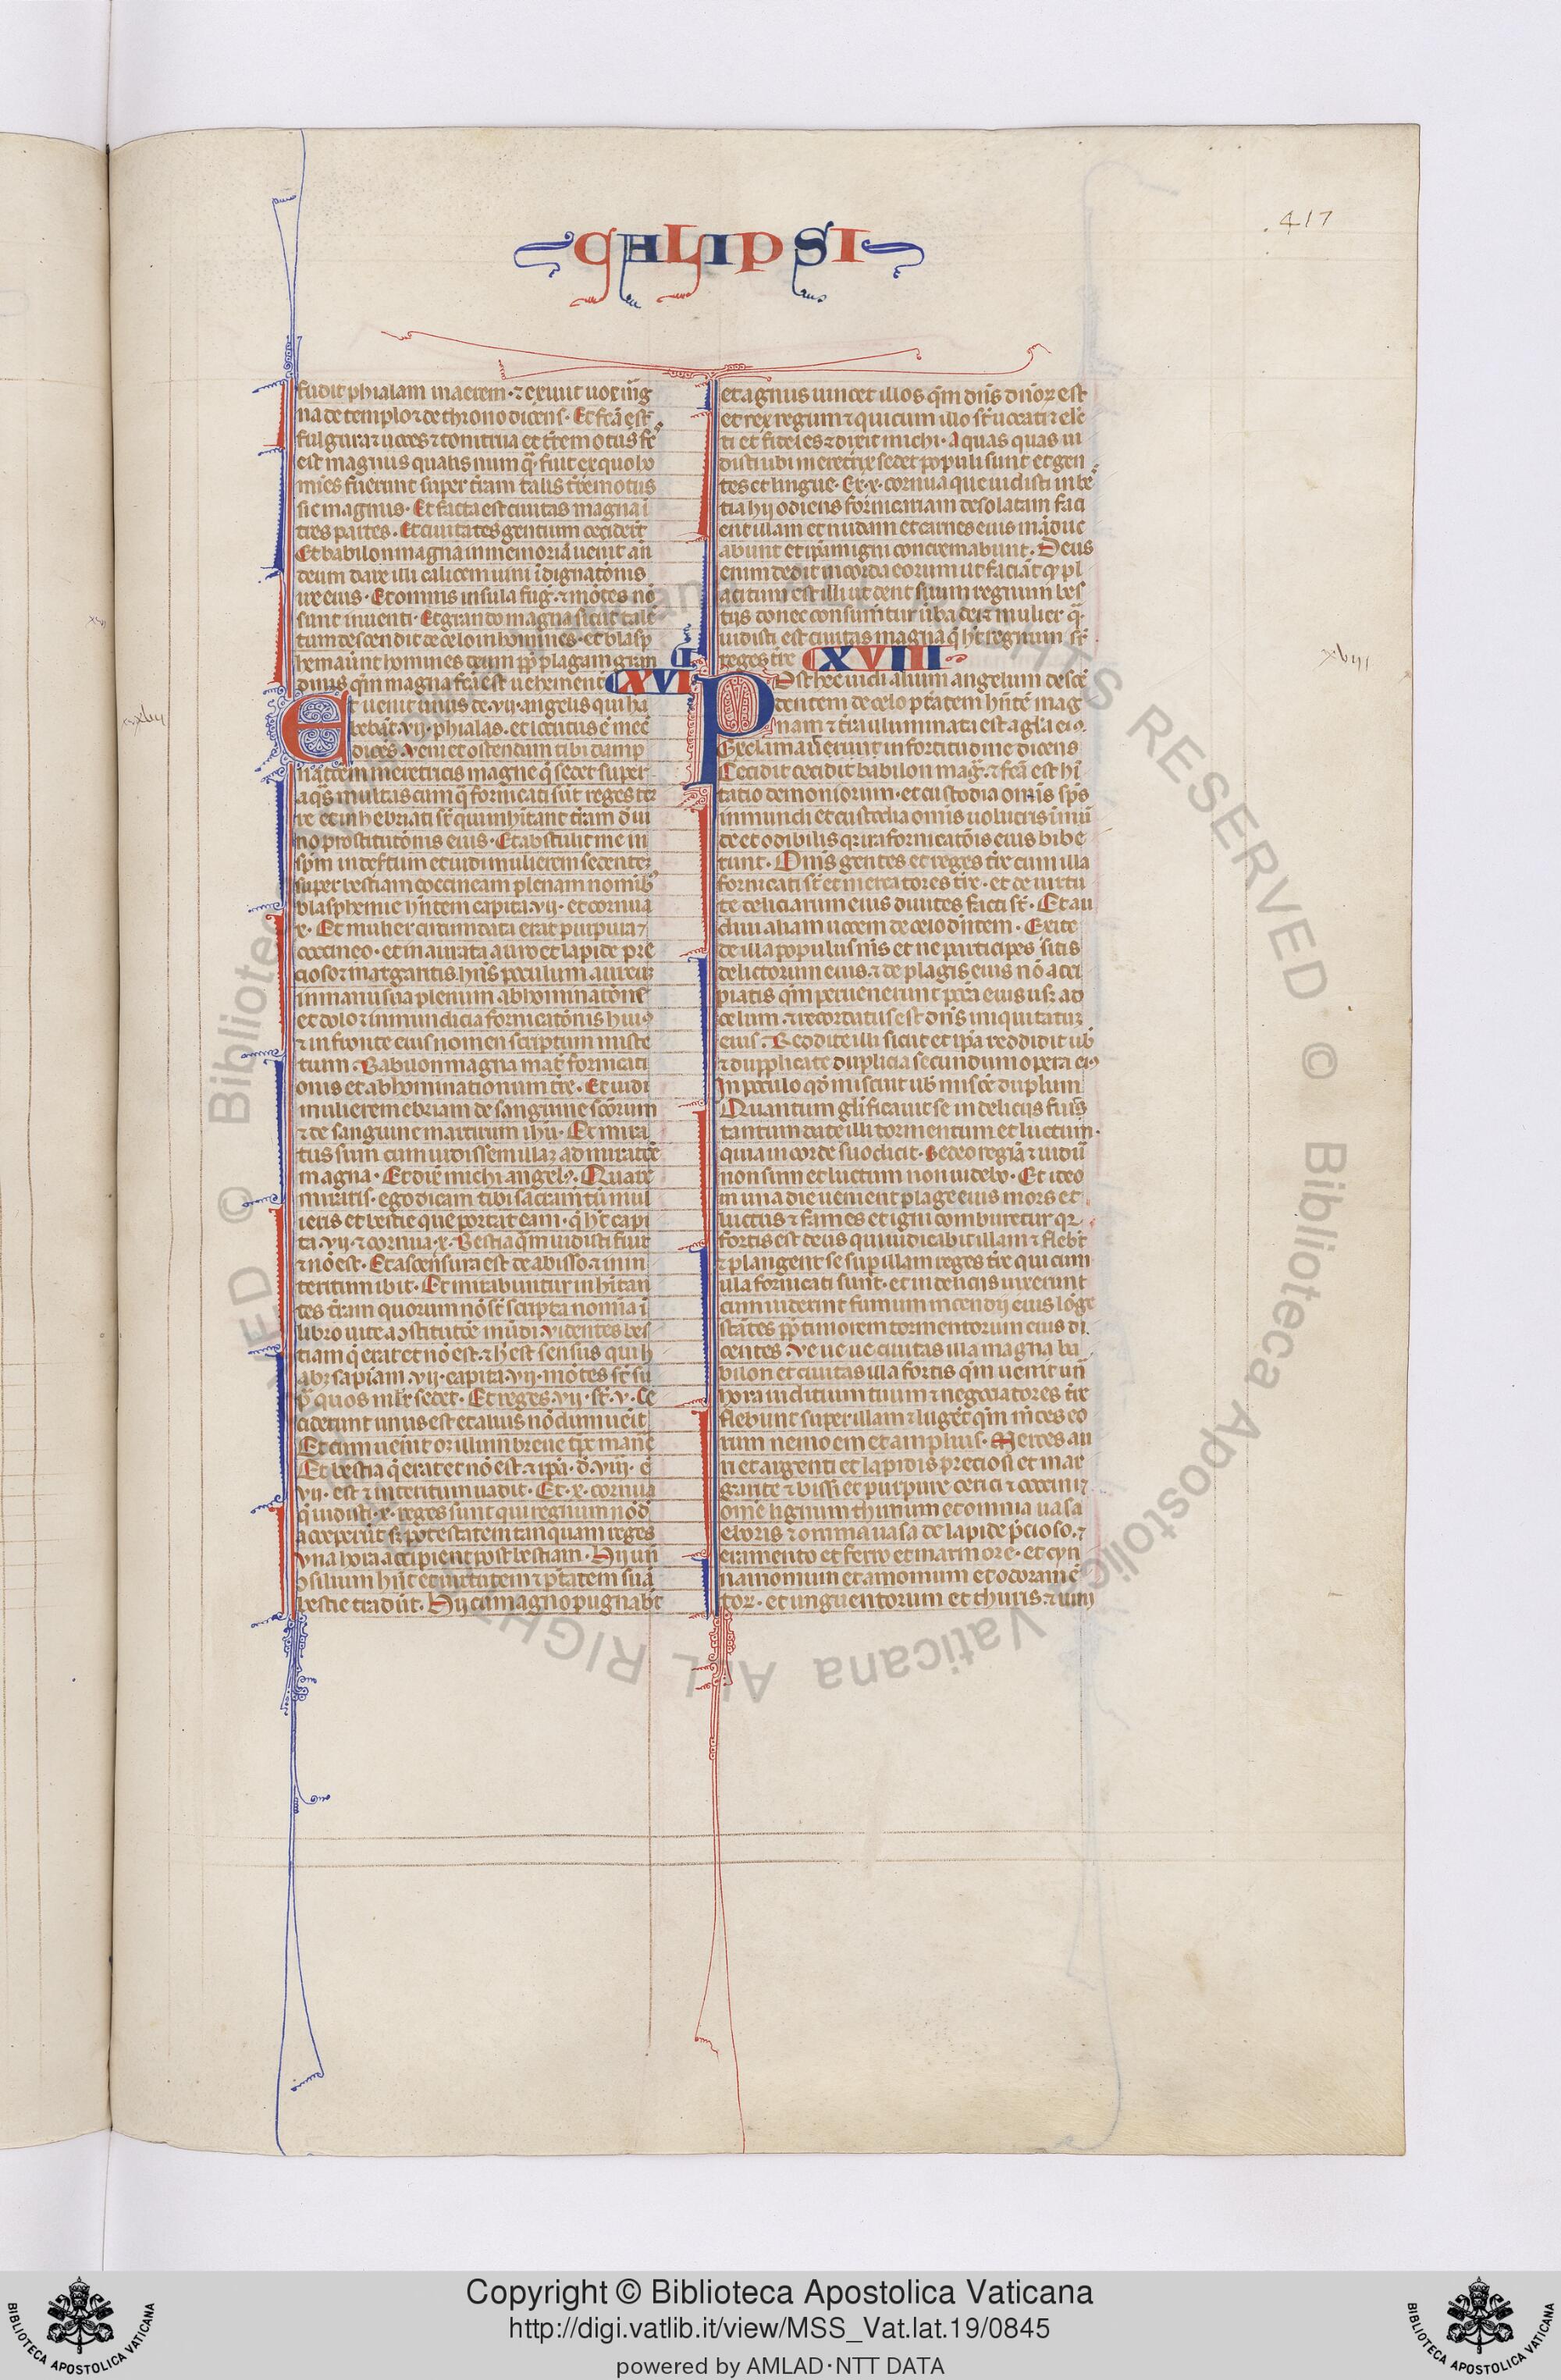 CALIPSI
417
fudit phialam in aerem · ⁊ exiuit uox mag
na de templo ⁊ de throno dicens · Et fc̄a est
fulgura ⁊ uoces ⁊ tonitrua et t̄remotus fc̄
est magnus qualis numq̄ · fuit ex quo ho
mīes fuerunt super t̄ram talis t̄remotus
sic magnus · Et facta est ciuitas magna ī
tres partes · Et ciuitates gentium cecider̄t
Et babilon magna in memoriā uenit an̄
deum dare illi calicem uini īdignatōnis
ire eius · Et omnis insula fuḡ · ⁊ mōtes nō
sunt inuenti · Et grando magna sicut tale
tum descendit de celo in homines · et blasp
hemauūt homines deum pp̄ plagam gran
dinis qm̄ magna fc̄a est uehement̄
XVII
Et uenit unus de · vij · angelis qui ha
bebāt · vij · phialas · et locutus ē mec̄
dicēs · Veni et ostendam tibi damp
natōem meretricis magne q̄ sedet super
aq̄s multas cum q̄ fornicati sūt reges ter
re et inhebriati st̄ qui inhitant t̄ram d̄ ui
no prostitutōnis eius · Et abstulit me in
sp̄m in desertum et uidi mulierem sedentē
super bestiam coccineam plenam nomib⁹
blasphemie hn̄tem capita · vij · et cornua
x · Et mulier circumdata erat purpura ⁊
coccineo · et inaurata auro et lapide pre
cioso ⁊ margaritis hn̄s poculum aureū
in manu sua plenum abhominatōne
et dolo ⁊ inmundicia fornicatōnis hui⁹
⁊ in fronte eius nomen scriptum miste
rium · Babilon magna mat̄ fornicati
onis et abhominationum tr̄e · Et uidi
mulierem ebriam de sanguine sc̄orum
⁊ de sanguine martirum ih̄u · Et mira
tus sum cum uidissem illaꝫ admiratōe
magna · Et dix̄ michi angel⁹ · Quare
miraris · ego dicam tibi sacram̄tū mul
ieris et bestie que portat eam · q̄ ht̄ capi
ta · vij · ⁊ cornua · x · Bestia q̄m uidisti fuit
⁊ nō est · Et ascensura est de abisso ⁊ in in
teritum ibit · Et mirabuntur inhitan
tes t̄ram quorum nō st̄ scripta nomīa ī
libro uite a ↄstitutōe mūdi uidentes bes
tiam q̄ erat et nō est · ⁊ h̄ est sensus qui h
abꝫ sapiam · vij · capita · vij · mōtes st̄ su
p̄ quos mlr̄ sedet · Et reges · vij · st̄ · v · Ce
ciderunt unus est et alius nōdum uēit
Et cum uenit · or illum breue tp̄s manē
Et bestia q̄ erat et nō est · ⁊ ip̄a · d̄ · viii · ē
vij · est ⁊ in interitum uadit · Et · x · cornua
q̄ uidisti · x · reges sunt qui regnum nōd̄
acceperūt sꝫ potestatem tanquam reges
vna hora accipient post bestiam · Hij un̄
ↄsilium hn̄t et uirtutem ⁊ p̄tatem suā
bestie tradūt · Hij cū magno pugnabt̄
et agnus uincet illos qm̄ dn̄s dn̄oꝝ est
et rex regum ⁊ qui cum illo st̄ uocati ⁊ elc̄
ti et fideles ⁊ dixit michi · Aquas quas ui
disti ubi meretrix sedet populi sunt et gen
tes et lingue · Et · x · cornua que uidisti in be
tia hij odiens fornicariam desolatam faci
ent illam et nudam et carnes eius māduc
abunt et ip̄am igni concremabunt · Deus
enim dedit in corda eorum ut faciāt qꝫ pl
acitum est illi ut dent suum regnum bes
tijs donec consum̄tur ūba dei ⁊ mulier q̄ ·
uidisti est ciuitas magna q̄ ht̄ regnum sr̄
reges tr̄e
XVIII
Post hec uidi alium angelum descē
dentem de celo p̄tatem hn̄tē mag
nam ⁊ t̄ra illuminata est a gl̄ia ei⁹ ·
Et exclamauit in fortitudine dicens
Cecidit cecidit babilon maḡ · ⁊ fc̄a est hī
tatio demoniorum · et custodia om̄is sp̄s
inmundi et custodia om̄is uolucris īmū
de et odibilis qꝛ ira fornicatōis eius bibe
runt · Om̄s gentes et reges tr̄e cum illa
fornicati st̄ et mercatores tr̄e · et de uirtu
te deliciarum eius diuites facti st̄ · Et au
diui aliam uocem de celo dn̄tem · Exite
de illa populus m̄s et ne participes sitis
delictorum eius · ⁊ de plagis eius nō acci
piatis qm̄ peruenerunt pcc̄a eius usꝫ ad
celum · ⁊ recordatus est dn̄s iniquitatuꝫ
eius · Reddite illi sicut et ip̄a reddidit ub̄
⁊ dupplicate duplicia secundum opera ei⁹
In poculo qd̄ miscuit ub̄ miscē duplum
Quantum gl̄ificauit se in delicijs fuit
tantum date illi tormentum et luctum ·
quia in corde suo dicit · Sedeo regīa ⁊ uidū
non sum et luctum non uidebo · Et ideo
in una die uenient plage eius mors et
luctus ⁊ fames et igni comburetur qꝛ
fortis est deus qui iudicabit illam ⁊ flebt̄
⁊ plangent se sup̄ illam reges tr̄e qui cum
illa fornicati sunt · et in delicijs uixerunt
cum uiderint fumum incendij eius lōge
stātes pp̄ timorem tormentorum eius di
centes · Ve ue ue ciuitas illa magna ba
bilon et ciuitas illa fortis qm̄ uenit un̄
hora iuditium tuum ⁊ negociatores tr̄e
flebunt super illam ⁊ lugēt qm̄ m̄ces eo
rum nemo emet amplius · Merces au
ri et argenti et lapidis preciosi et mar
garite ⁊ bissi et purpure cerici ⁊ coccini ⁊
om̄e lignum thinum et omnia uasa
eboris ⁊ omnia uasa de lapide p̄cioso · ⁊
eramento et ferro et marmore · et cyn
namomum et amomum et odoramē
toꝝ · et unguentorum et thuris ⁊ uini
xviij
Copyright © Biblioteca Apostolica Vaticana
http://digi.vatlib.it/view/MSS_Vat.lat.19/0845
powered by AMLAD·NTT DATA
BIBLIOTECA APOSTOLICA VATICANA
BIBLIOTECA APOSTOLICA VATICANA